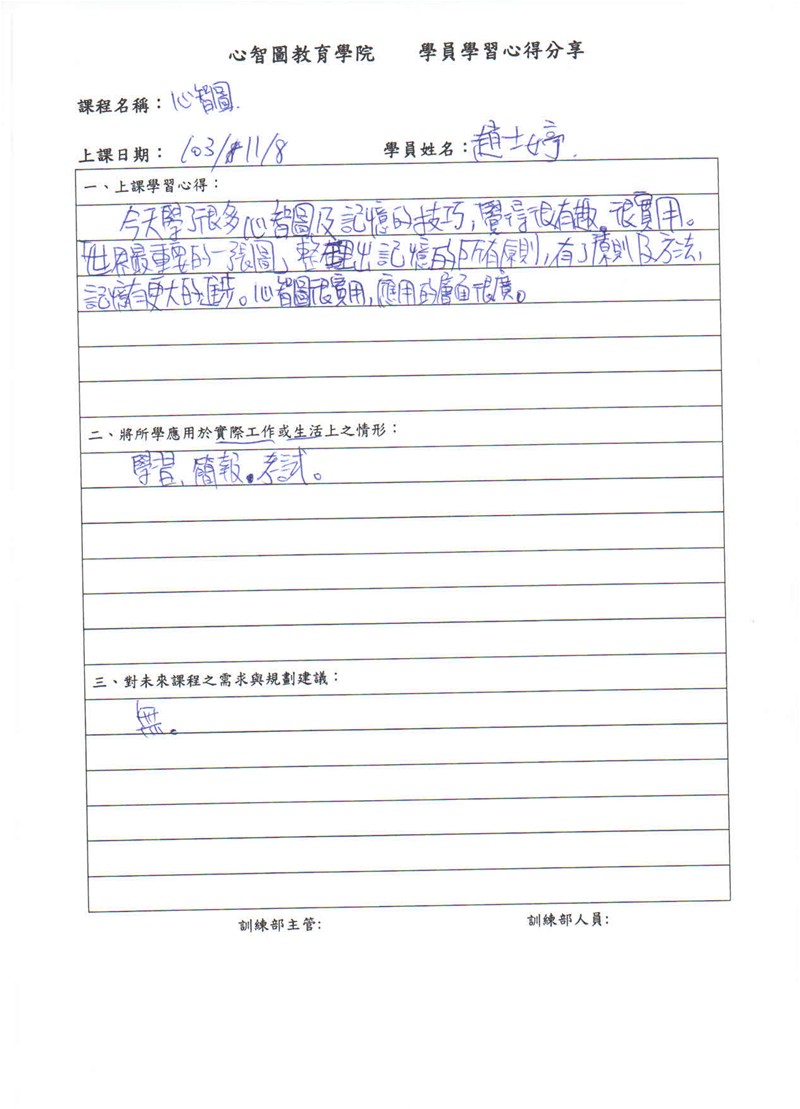 心智圖教育學院 學員學習心得分享
課程名稱：心智圖.
上課日期： 103/11/8 學員姓名：趙士婷.
一、上課學習心得：
今天學了很多心智圖及記憶的技巧,覺得很有趣.很實用。
「世界最重要的一張圖」整理出記憶的所有原則,有了原則及方法,
記憶有更大的進步。心智圖很實用,應用的層面很廣。
二、將所學應用於實際工作或生活上之情形：
學習、簡報、考試。
三、對未來課程之需求與規劃建議：
無。
訓練部主管: 訓練部人員: